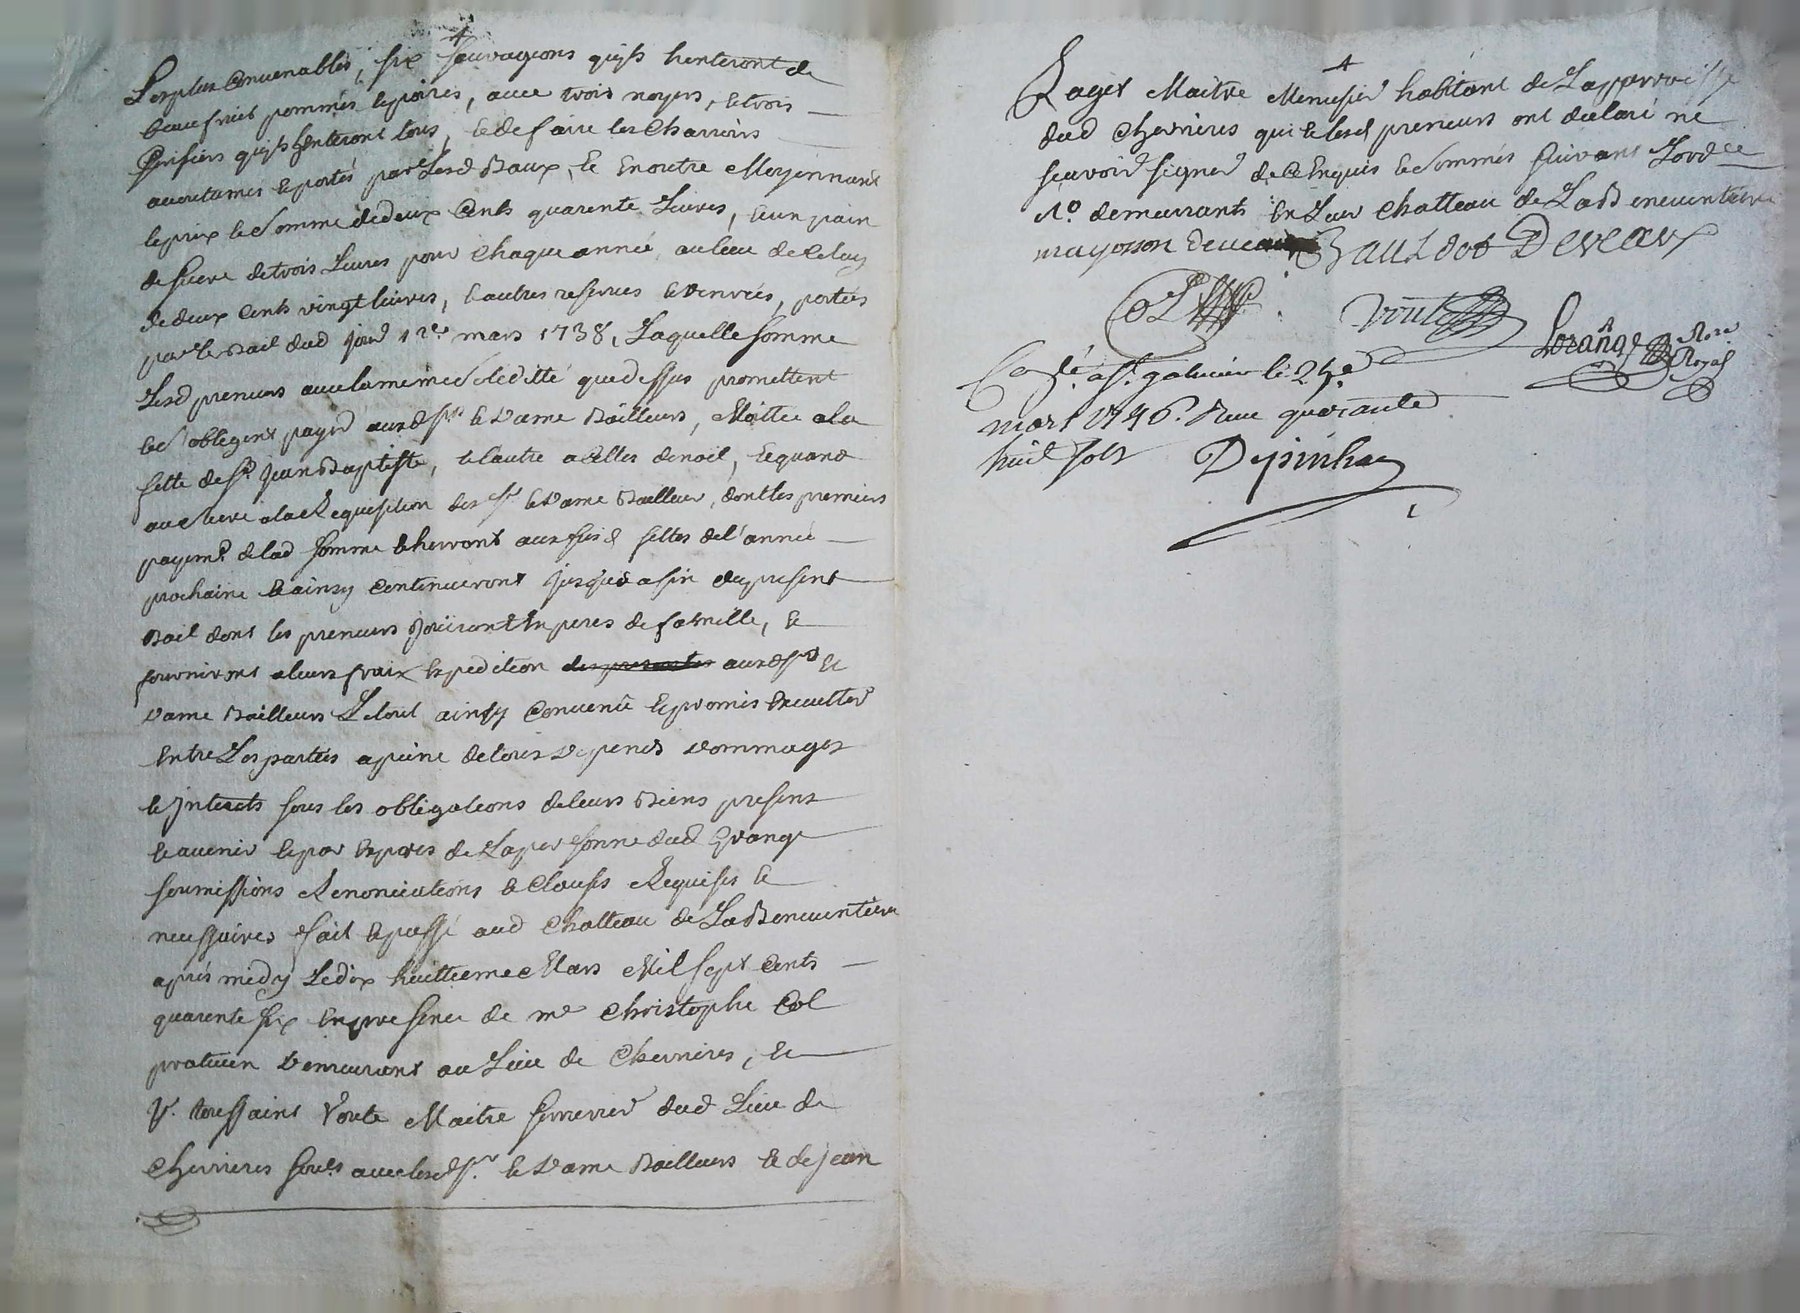 Les plus convenables, six sauvageons quils henteront de
beau fruit pommes et poires, avec trois noyers, et trois
Cerisiers quils henteront tous, et de faire les charrois
accoutumes et portés par lesd Baux, et en outre Moyennant
le prix et somme de deux cents quarente Livres, et un pain
de sucre de trois Livres pour chaque année, au lieu de celuy
de deux cents vingt livres, et autres reserves et denrées, portées
par le Bail dud jour 12e mars 1738, Laquelle somme
Lesd preneurs avec la meme soliditté que dessus promettent
et s'obligent payer auxd srs et Dame Bailleurs, Moittié a la
fette de st Jean Baptiste, et l'autre a celles de noel, et quand
au sucre a la Requisition desd sr et Dame Bailleur, dont les premiers
payemts de lad somme echerront auxsusd fettes de l'année
prochaine et ainsy continueront jusques a fin du present
Bail dont les preneurs Joüiront en peres de famille, et
fourniront a leurs fraix expedition des presentes auxd srs et
Dame Bailleurs Le tout ainsy convenu et promis executter
entre Les parties a peine de tous depends dommages
et Interets sous les obligations de leurs Biens present
et avenir et par expres de La personne dud
soumissions Renonciations et clauses Requises et
necessaires fait et passé aud chatteau de La Bencuntiere
aprés midy Le dix huittieme Mars Mil sept cents
quarente six en presence de me christophe Col
praticien demeurant au Lieu de chevrieres, et
sr. toussaint Voute Maitre serrurier dud Lieu de
chevrieres sousnes avec lesd srs et Dame Bailleurs et de jean
Raget Maitre Menusier habitant de La parroisse
dud chevrieres qui et lesd preneurs ont declaré ne
scavoir signer de ce Enquis et sommés suivant L'ordce
no demeurants en Leur chatteau de La Bencuntiere
mayosson deveaux Bauldot Deveaux
Col
Voute
Lorange Nore Royal
Conlé a st galmier le 24e
mars 1746. Reçu quarante
huit sols Depinhac